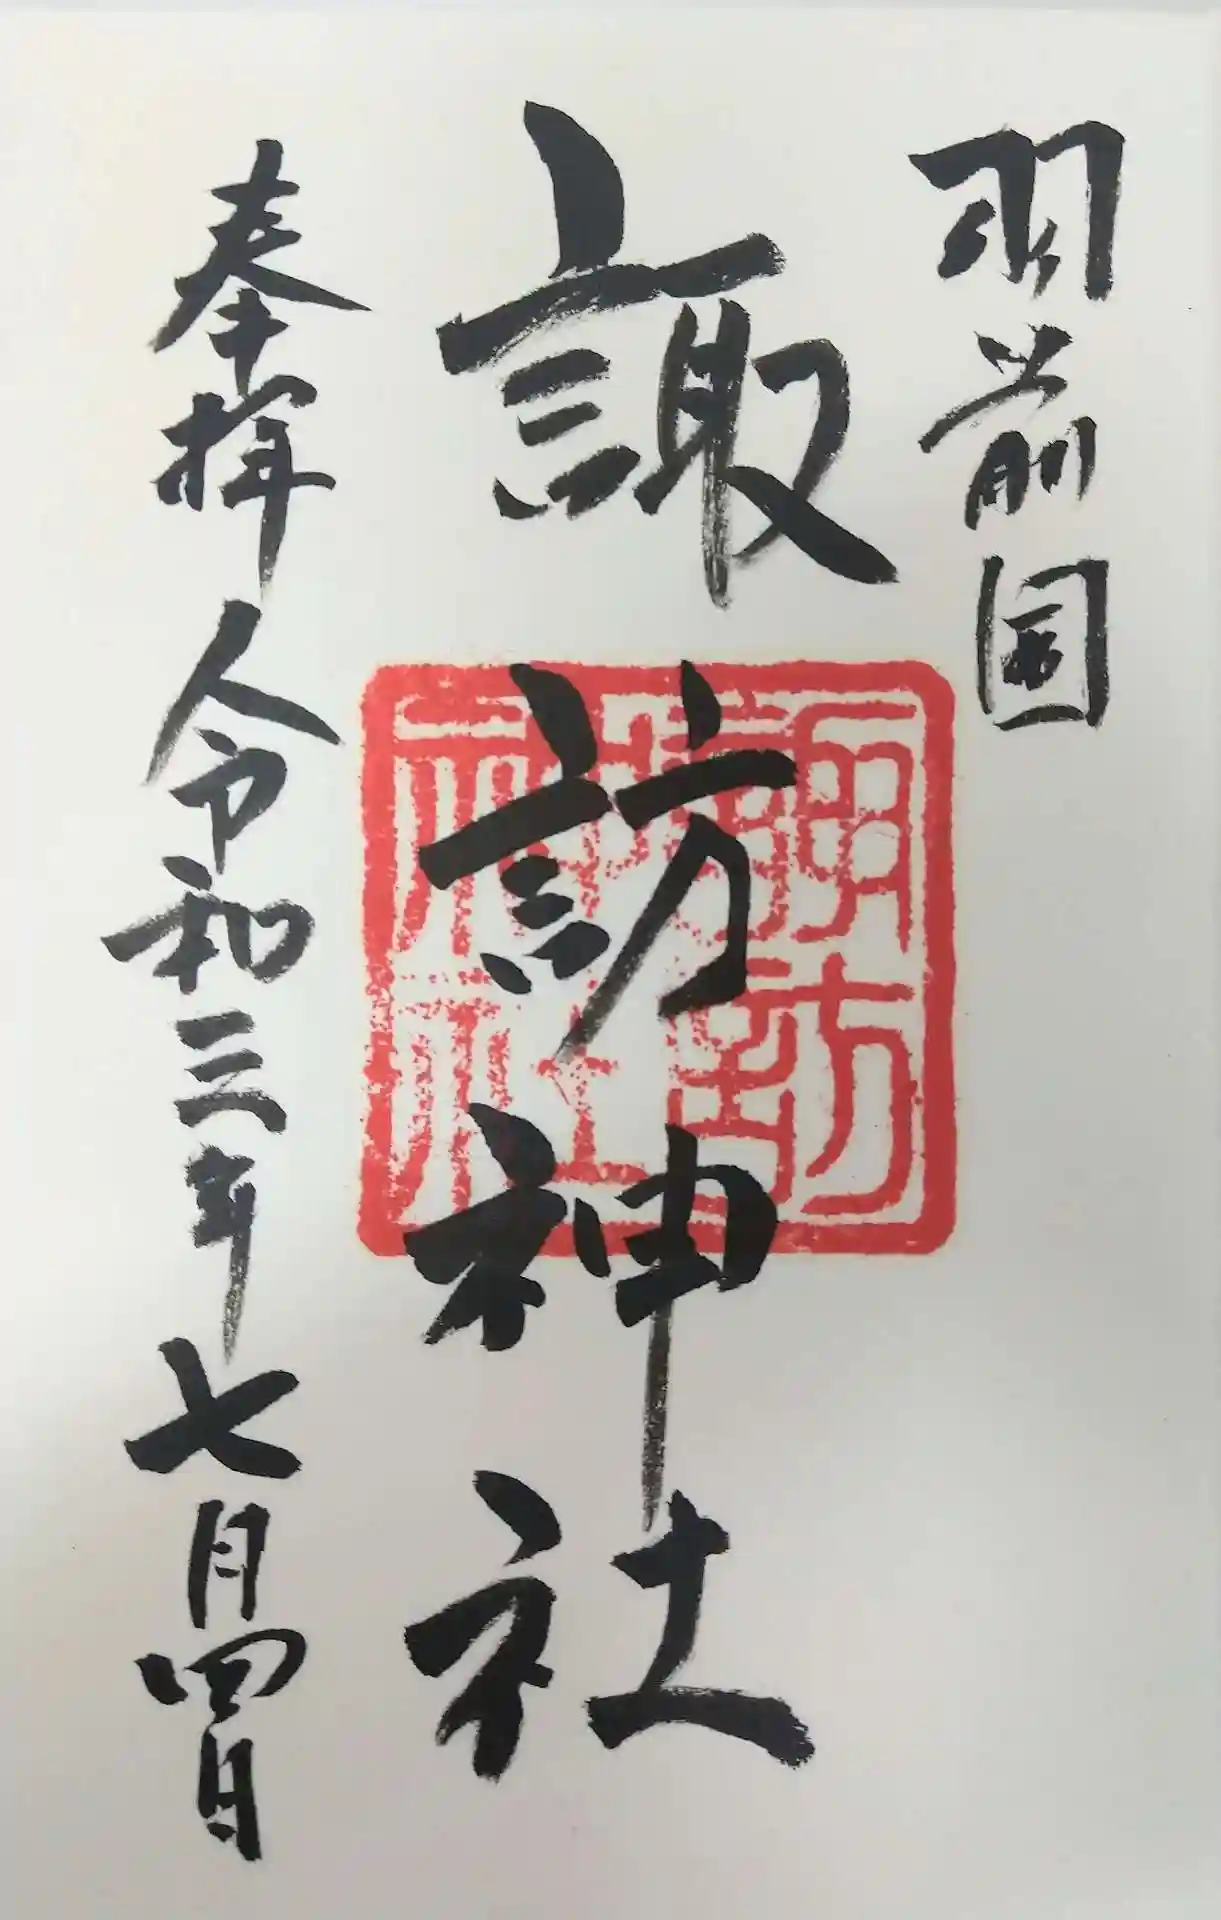 羽前国
諏訪神社
諏訪神社
奉拝 令和三年七月四日